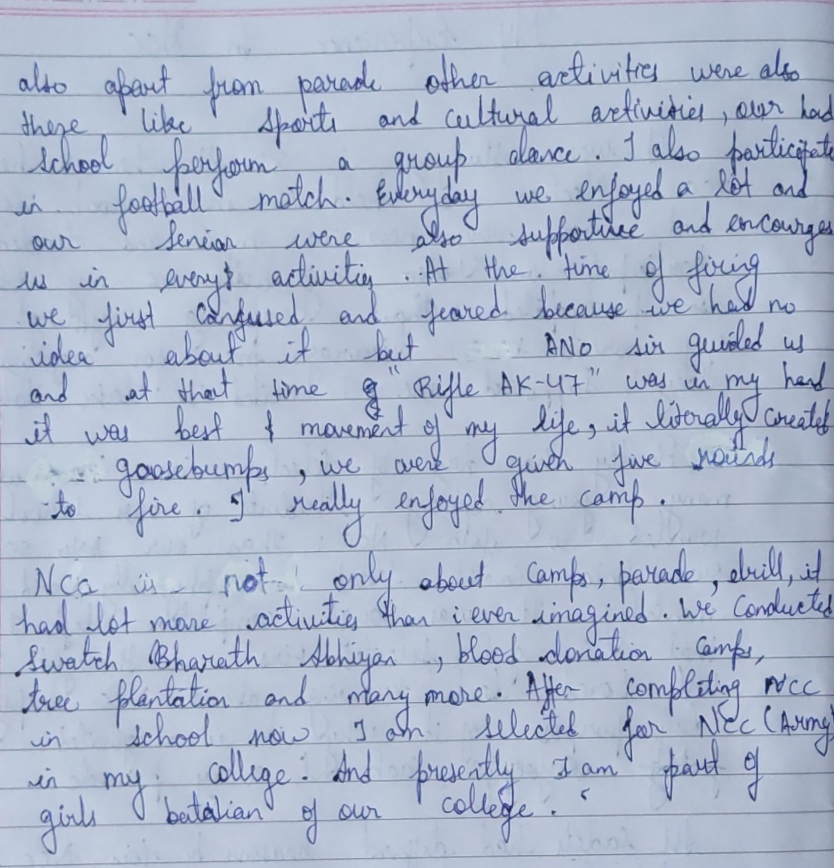 also apart from parade other activities were also
there like sports and cultural activities, our had
school perform a group dance. I also participate
in football match. Everyday we enjoyed a lot and
our Senior were also supportive and encourges
us in every activities. At the time of firing
we first confused and feared because we had no
idea about it but ANO sir guided us
and at that time "Rifle AK-47" was in my hand
it was best movement of my life, it literally created
goosebumps, we were given five rounds
to fire. I really enjoyed the camp.
NCC is not only about camps, parade, drill, it
had lot more activities than i ever imagined. We conducted
Swatch Bharath Abhiyan, blood donation camps,
tree plantation and many more. After compliting NCC
in school now I am selected for NCC (Army)
in my college. And presently I am part of
girls batalian of our college.